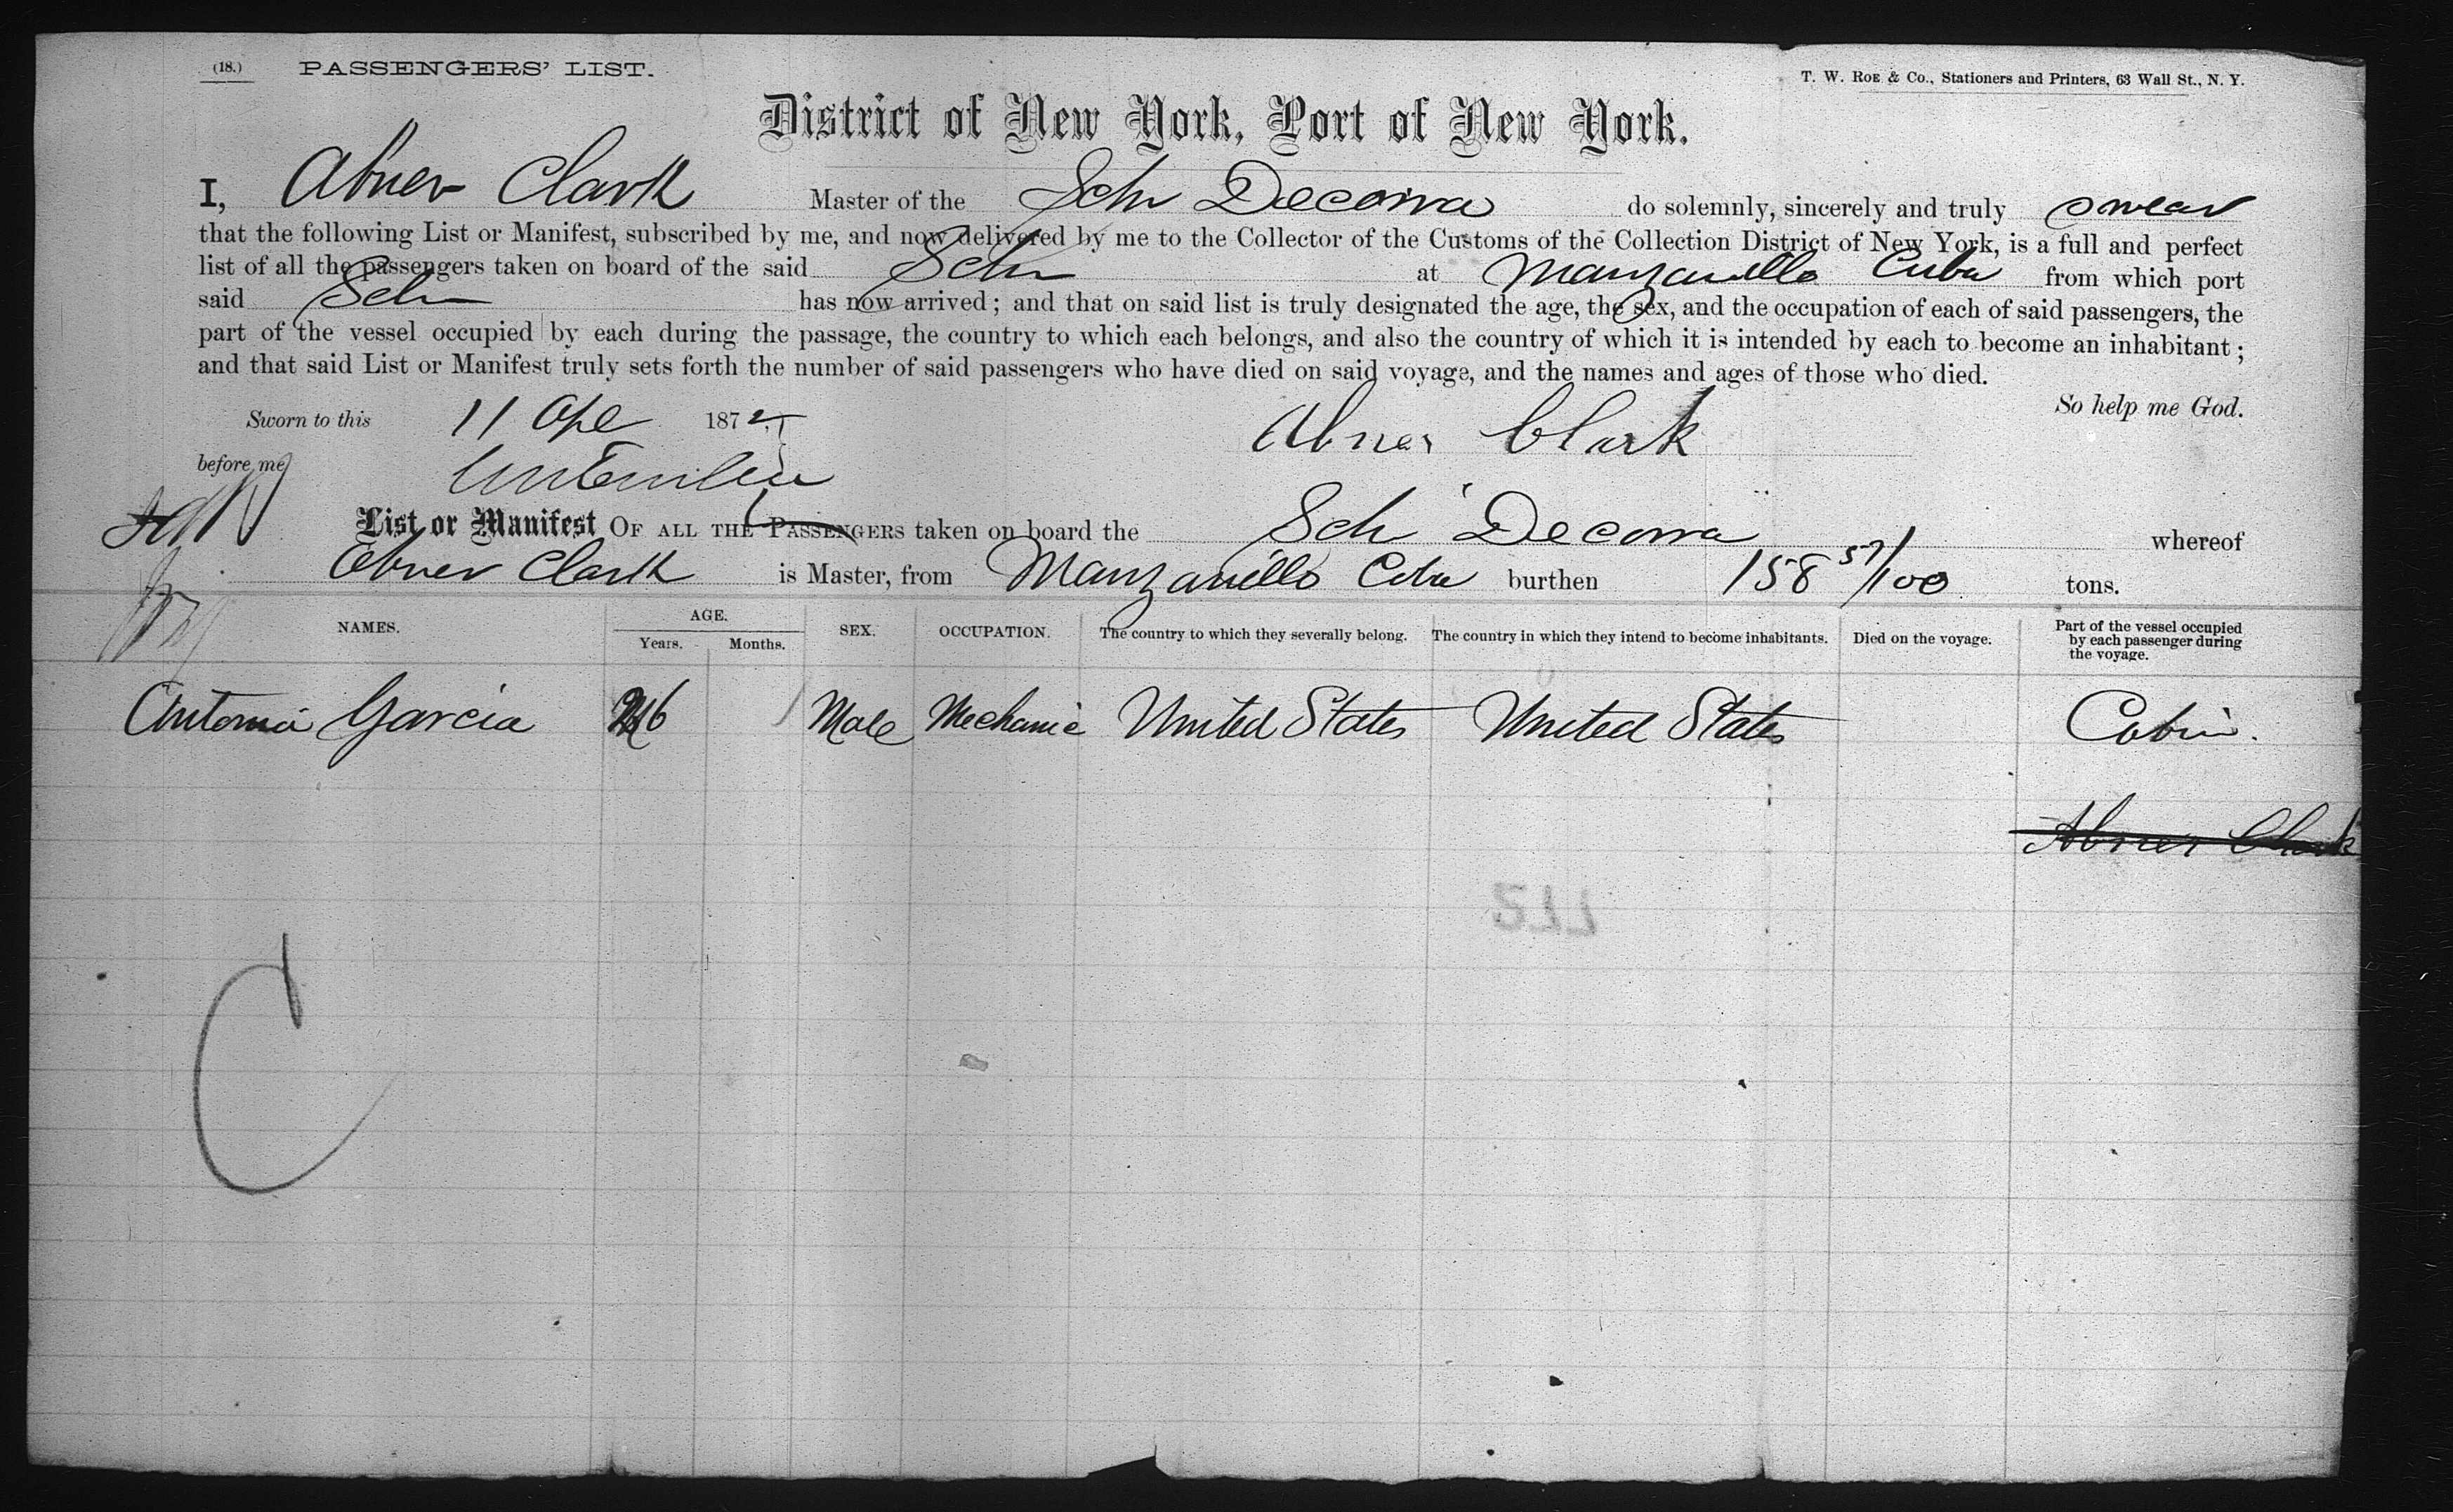 (18.) PASSENGERS' LIST.
T. W. Roe & Co., Stationers and Printers, 63 Wall St., N. Y.
District of New York, Port of New York.
I, Abner Clark Master of the Schr Decorra do solemnly, sincerely and truly swear
that the following List or Manifest, subscribed by me, and now delivered by me to the Collector of the Customs of the Collection District of New York, is a full and perfect
list of all the passengers taken on board of the said Schr at Manzanillo Cuba from which port
said Schr has now arrived; and that on said list is truly designated the age, the sex, and the occupation of each of said passengers, the
part of the vessel occupied by each during the passage, the country to which each belongs, and also the country of which it is intended by each to become an inhabitant;
and that said List or Manifest truly sets forth the number of said passengers who have died on said voyage, and the names and ages of those who died.
So help me God.
Sworn to this 11 Apl 187
Abner Clark
before me
List or Manifest OF ALL THE PASSENGERS taken on board the Schr Decorra whereof
Abner Clark is Master, from Manzanillo Cuba burthen 158 57/100 tons.
NAMES. AGE. Years. Months. SEX. OCCUPATION. The country to which they severally belong. The country in which they intend to become inhabitants. Died on the voyage. Part of the vessel occupied by each passenger during the voyage.
Antonia Garcia Male Mechanic United States United States Cabin.
Abner Clark
511
C